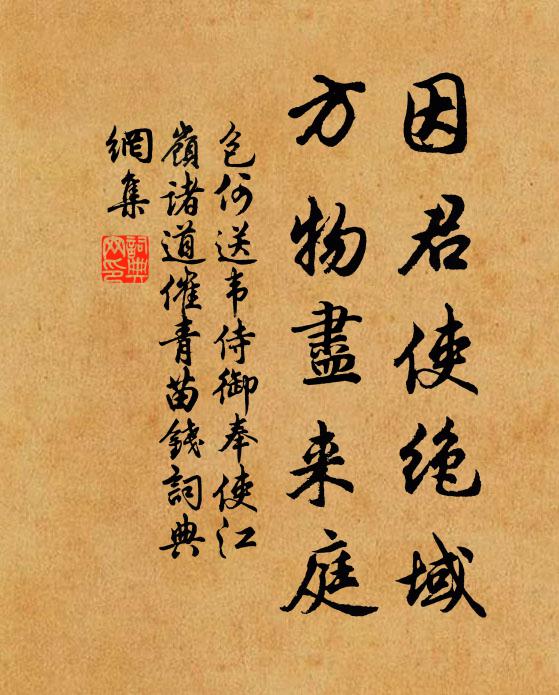 因君使绝域
方物盡来庭
包何送韦侍御奉使江
嶺诸道催青苗錢詞典
網集
詞典
网印